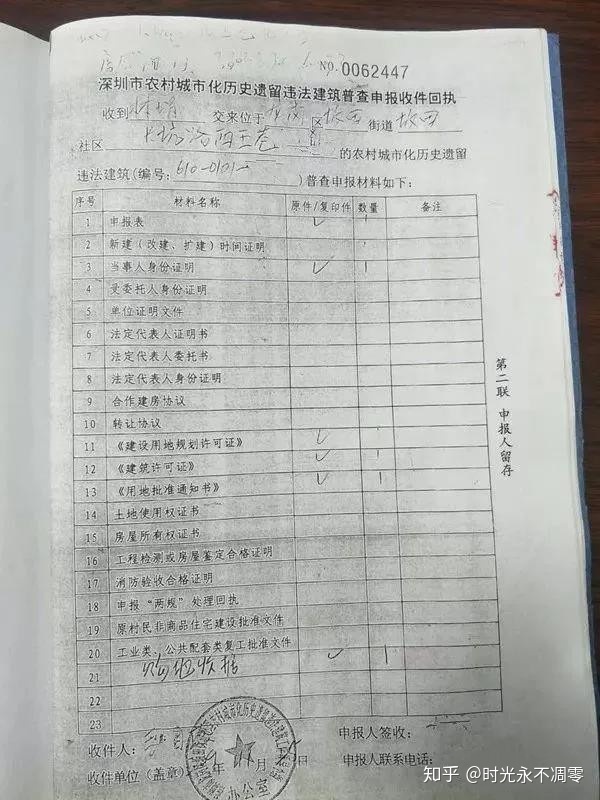 NO.0062447
深圳市农村城市化历史遗留违法建筑普查申报收件回执
收到 交来位于 区 坂田 街道 坂田
社区 的农村城市化历史遗留
违法建筑(编号: 610-0101 )普查申报材料如下:
序号 材料名称 原件/复印件 数量 备注
1 申报表 ✓
2 新建(改建、扩建)时间证明
3 当事人身份证明 ✓ 1
4 受委托人身份证明
5 单位证明文件
6 法定代表人证明书
7 法定代表人委托书
8 法定代表人身份证明
9 合作建房协议
10 转让协议
11 《建设用地规划许可证》 ✓ 1
12 《建筑许可证》 ✓ 1
13 《用地批准通知书》 ✓ 1
14 土地使用权证书
15 房屋所有权证书
16 工程检测或房屋鉴定合格证明
17 消防验收合格证明
18 申报“两规”处理回执
19 原村民非商品住宅建设批准文件
20 工业类、公共配套类复工批准文件
21 购地收据 ✓ 1
22
23
收件人: 申报人签收:
收件单位(盖章) 年 月 日 申报人联系电话:
办公室
第二联 申报人留存
知乎 @时光永不凋零